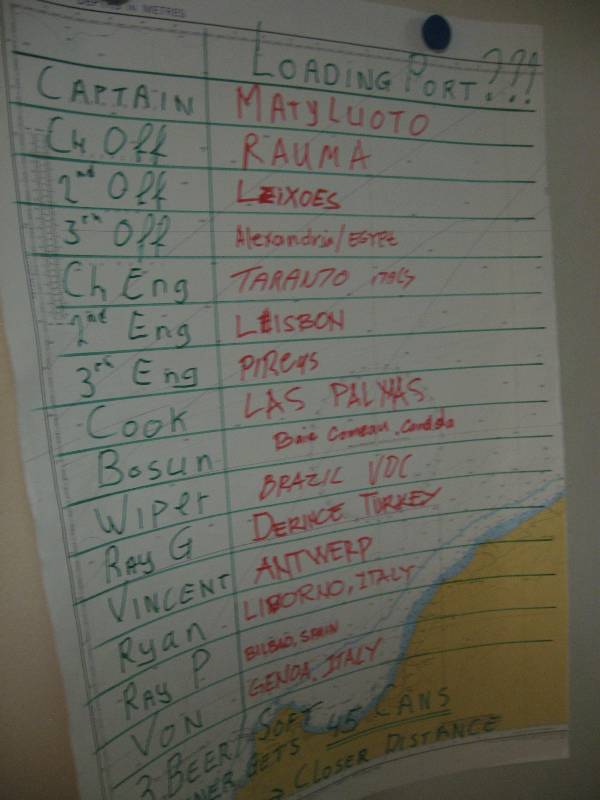 DEPTHS IN METRES
LOADING PORT???!
CAPTAIN MATYLUOTO
Ch Off RAUMA
2nd Off LEIXOES
3rd Off Alexandria/EGYPT
Ch Eng TARANTO ITALY
2nd Eng LEISBON
3rd Eng PIREUS
COOK LAS PALMAS
Bosun Baie Comeau, Canada
WIPER BRAZIL VDC
RAY G DERINCE TURKEY
VINCENT ANTWERP
Ryan LIBORNO, ITALY
RAY P BILBAO, SPAIN
VON GENOA, ITALY
3 BEER/SOFT
GETS 45 CANS
CLOSER DISTANCE